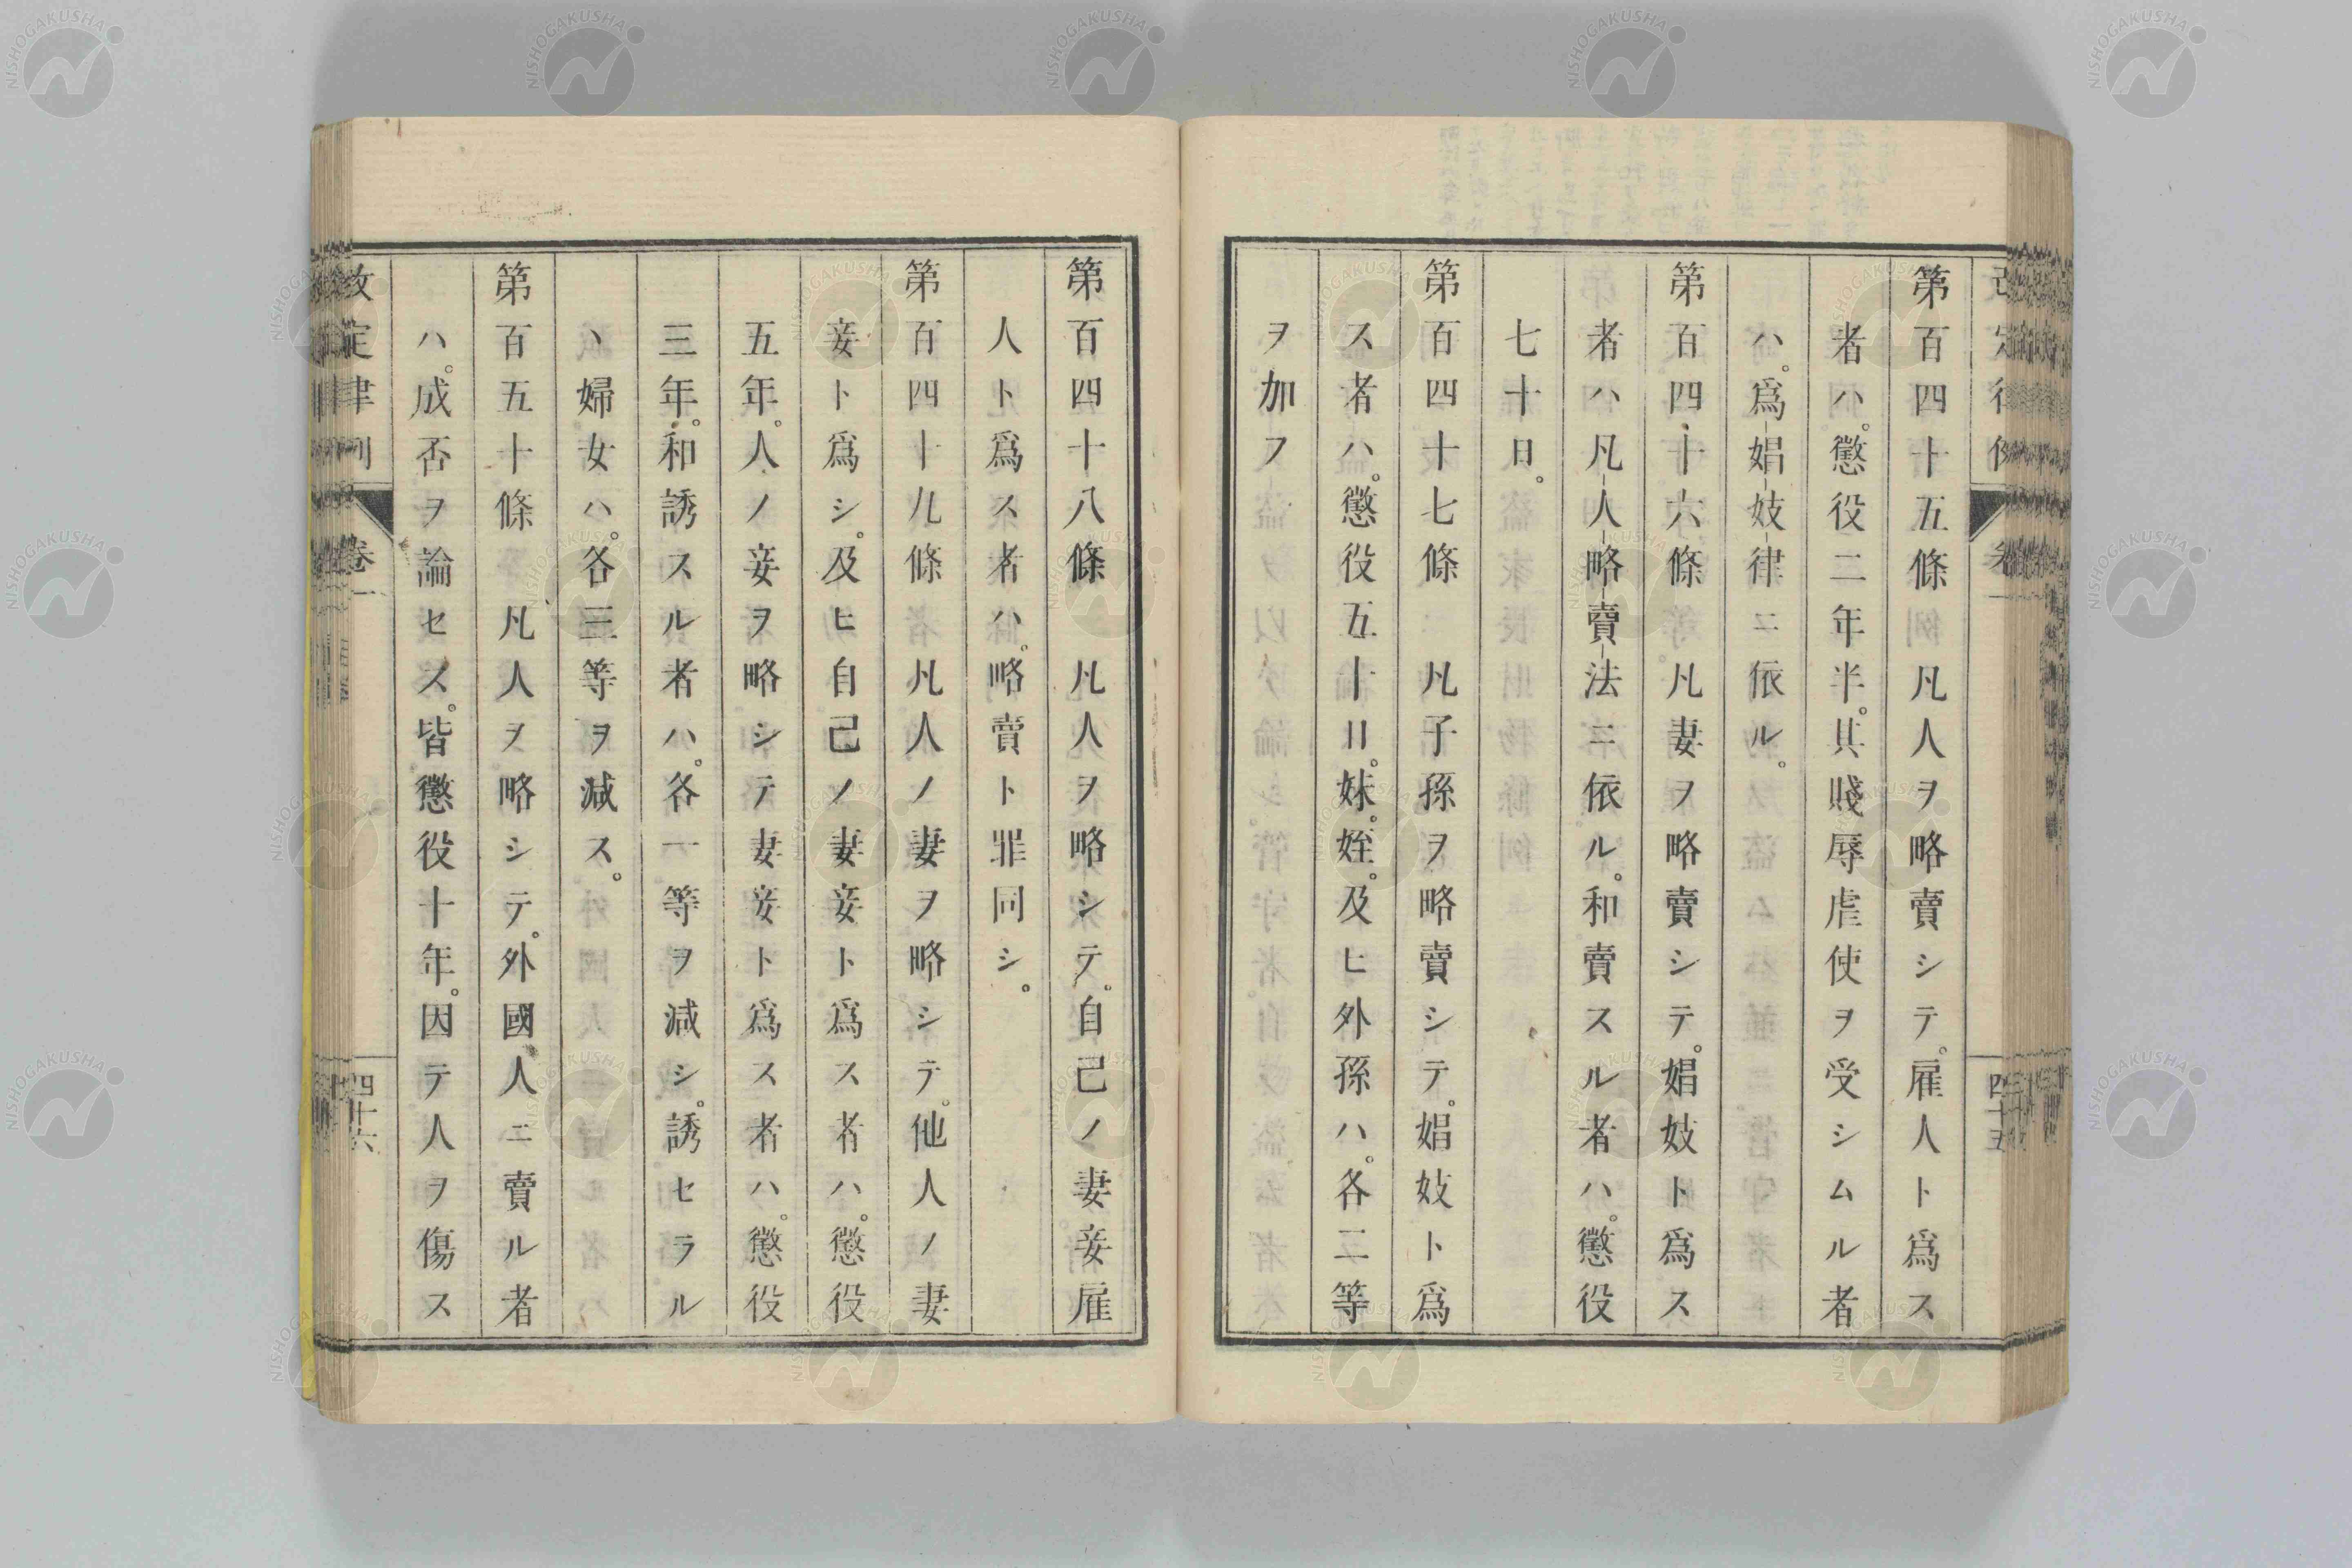 第百四十五條 凡人ヲ略賣シテ。雇人ト爲ス
者ハ。懲役二年半。其賤辱虐使ヲ受シムル者
ハ。爲娼妓律ニ依ル。
第百四十六條 凡妻ヲ略賣シテ。娼妓ト爲ス
者ハ凡人略賣法ニ依ル。和賣スル者ハ。懲役
七十日。
第百四十七條 凡子孫ヲ略賣シテ。娼妓ト爲
ス者ハ。懲役五十日。妹。姪。及ヒ外孫ハ。各二等
ヲ加フ
四十五
第百四十八條 凡人ヲ略シテ。自己ノ妻妾雇
人ト爲ス者ハ。略賣ト罪同シ。
第百四十九條 凡人ノ妻ヲ略シテ。他人ノ妻
妾ト爲シ。及ヒ自己ノ妻妾ト爲ス者ハ。懲役
五年。人ノ妾ヲ略シテ妻妾ト爲ス者ハ。懲役
三年。和誘スル者ハ。各一等ヲ減シ。誘セラル
ヽ婦女ハ。各三等ヲ減ス。
第百五十條 凡人ヲ略シテ。外國人ニ賣ル者
ハ。成否ヲ論セス。皆懲役十年。因テ人ヲ傷ス
改定律例 卷一 四十六
NISHOGAKUSHA